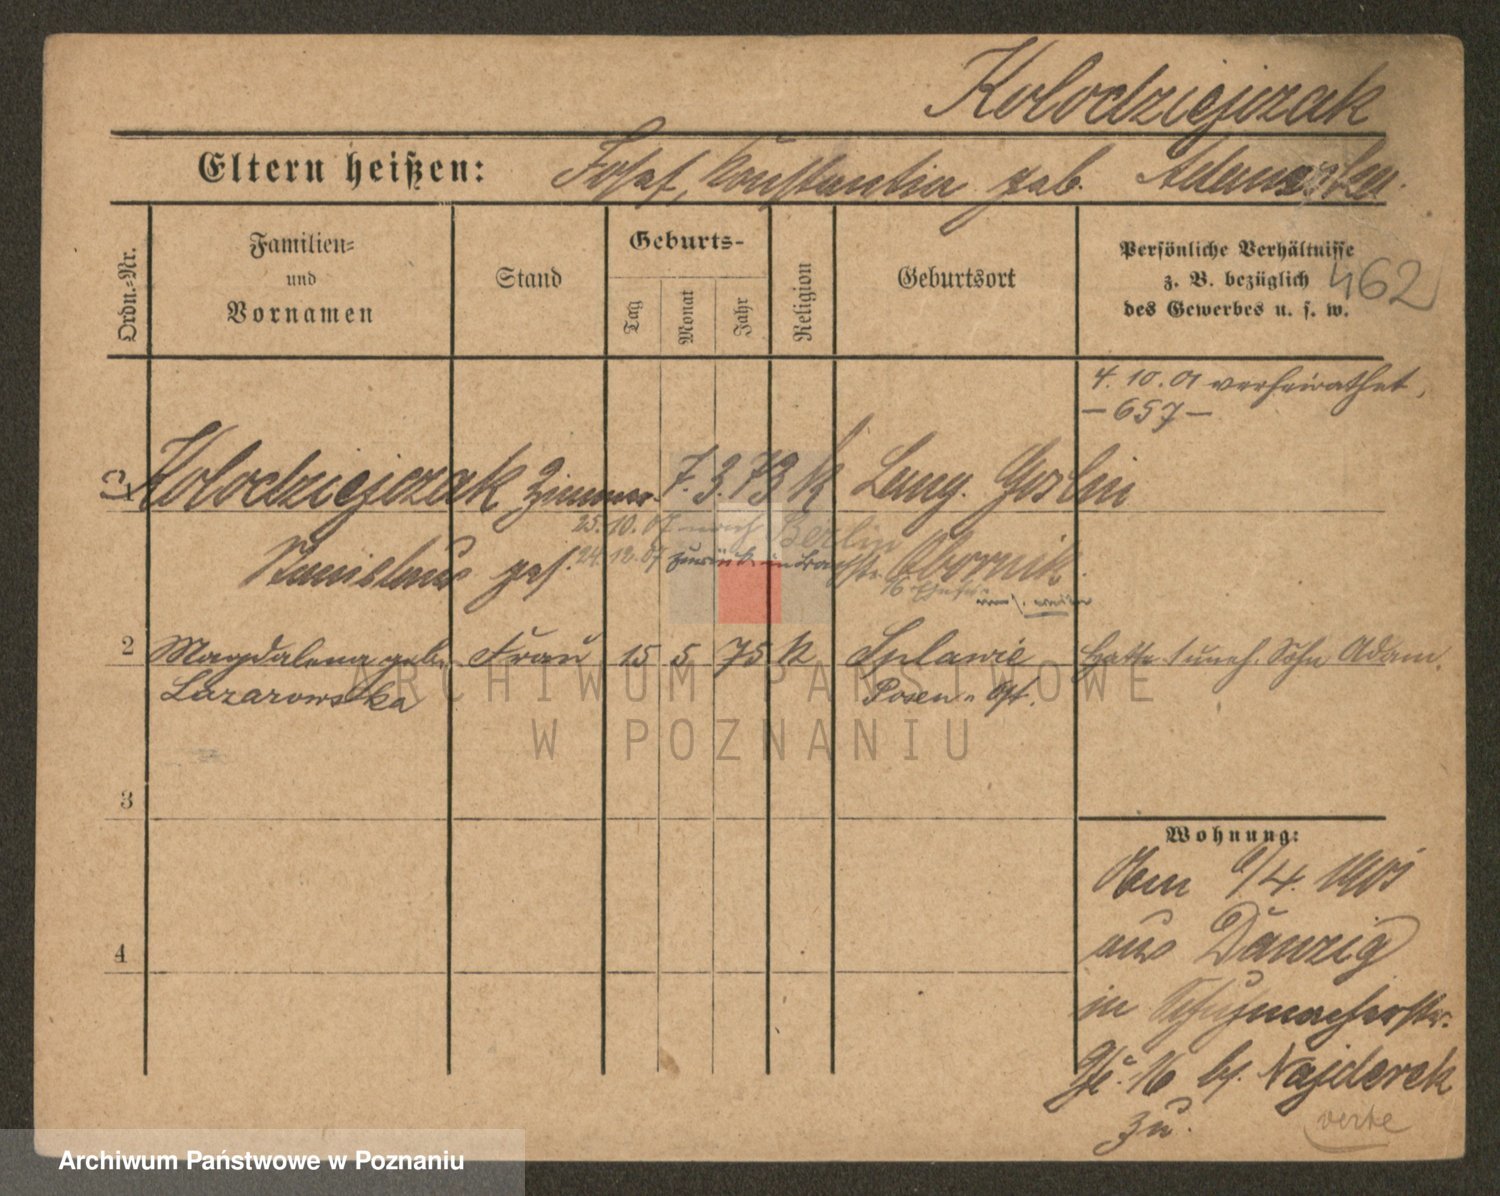 Kolodziejczak
Eltern heißen: Josef, Konstantia geb.
Ordn.-Nr.
Familien-
und
Vornamen
Stand
Geburts-
Tag
Monat
Jahr
Religion
Geburtsort
Persönliche Verhältnisse
z. B. bezüglich
des Gewerbes u. s. w.
462
4. 10. 01 verheirathet,
– 657 –
1 Kolodziejczak Zimmer- 7. 3. 73 k Lang. Goslin
25. 10. 07 nach Berlin
Stanislaus ges. Obornik
24. 12. 07 zurück in
2 Magdalena geb. Frau 15 5 75 k Splawie Hatte 1 uneh. Sohn Adam.
Lazarowska Posen-Ost.
ARCHIWUM PAŃSTWOWE
W POZNANIU
3
Wohnung:
4
1/4. 1901
aus Danzig
in Schuhmacherstr.
16 bei Najderek
zu.
verte
Archiwum Państwowe w Poznaniu